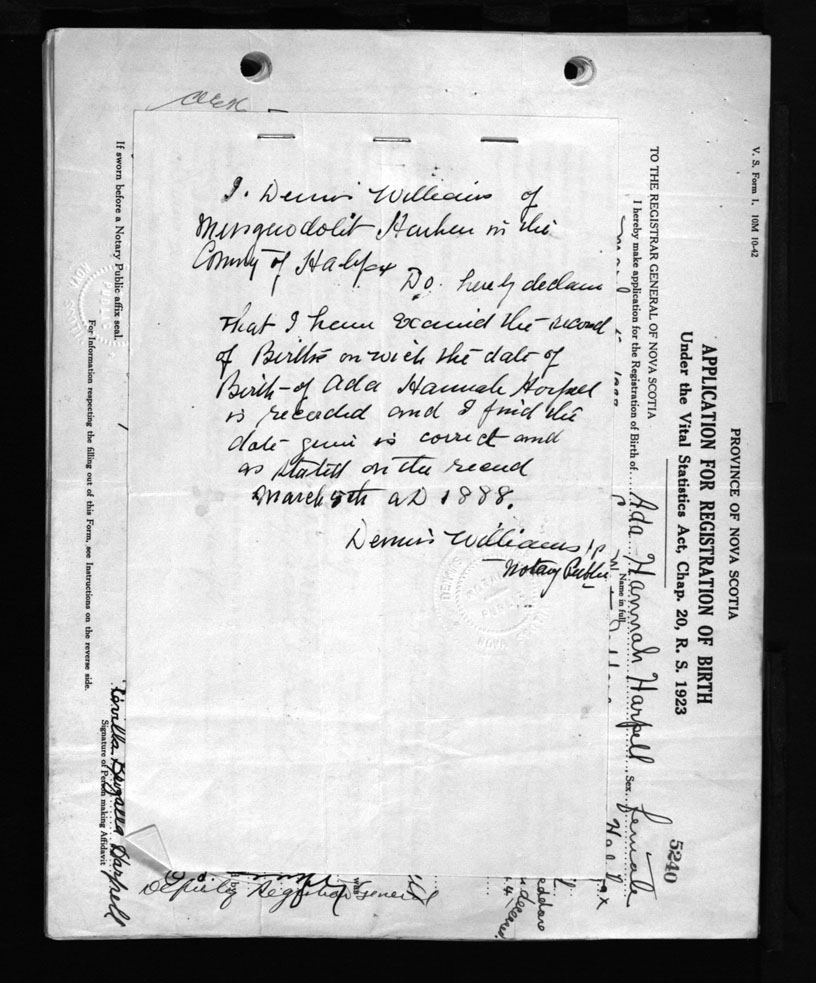 I. Dennis Williams of
Musquodoboit Harbour in the
County of Halifax
Do hereby declare
that I have examined the record
of Births on wich the date of
Birth of Ada Hannah Harpell
is recorded and I find the
date given is correct and
as stated on the record
March 5th AD 1888.
Dennis Williams J P
Notary Public
V. S. Form 1. 10M 10-42
PROVINCE OF NOVA SCOTIA
APPLICATION FOR REGISTRATION OF BIRTH
Under the Vital Statistics Act, Chap. 20, R. S. 1923
5240
TO THE REGISTRAR GENERAL OF NOVA SCOTIA
I hereby make application for the Registration of Birth of Ada Hannah Harpell Sex female
Name in full
Halifax
Deputy Registrar General
Signature of Person making Affidavit
Harpell
If sworn before a Notary Public affix seal.
For Information respecting the filling out of this Form, see Instructions on the reverse side.